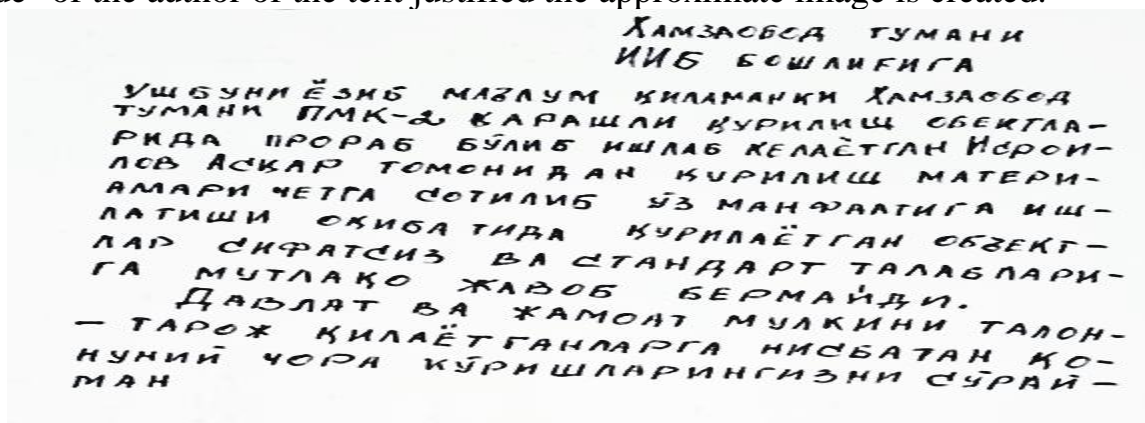 of the author of the text justified the approximate image is created.
ХАМЗАОБОД ТУМАНИ
ИИБ БОШЛИҒИГА
УШБУНИ ЁЗИБ МАЪЛУМ ҚИЛАМАНКИ ХАМЗАОБОД
ТУМАНИ ПМК-2 ҚАРАШЛИ ҚУРИЛИШ ОБЕКТЛА-
РИДА ПРОРАБ БЎЛИБ ИШЛАБ КЕЛАЁТГАН ИСРОИ-
ЛОВ АСҚАР ТОМОНИДАН ҚУРИЛИШ МАТЕРИ-
АМАРИ ЧЕТГА СОТИЛИБ ЎЗ МАНФААТИГА ИШ-
ЛАТИШИ ОҚИБАТИДА ҚУРИЛАЁТГАН ОБЪЕКТ-
ЛАР СИФАТСИЗ ВА СТАНДАРТ ТАЛАБЛАРИ-
ГА МУТЛАҚО ЖАВОБ БЕРМАЙДИ.
ДАВЛАТ ВА ЖАМОАТ МУЛКИНИ ТАЛОН-
- ТАРОЖ ҚИЛАЁТГАНЛАРГА НИСБАТАН ҚО-
НУНИЙ ЧОРА КЎРИШЛАРИНГИЗНИ СЎРАЙ-
МАН